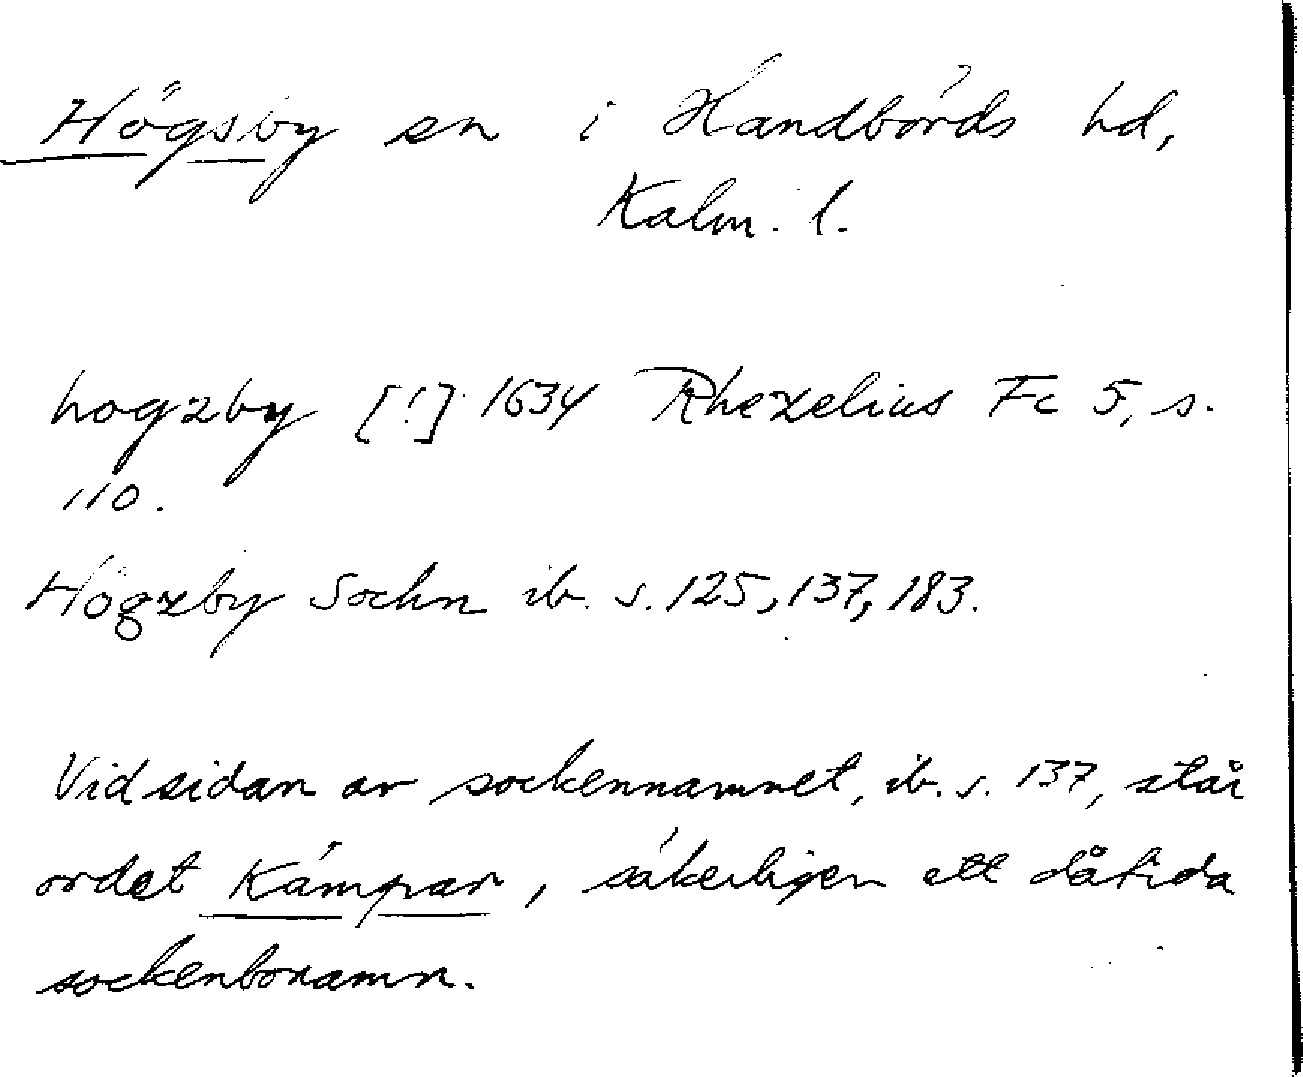 Högsby sn i Handbörds hd,
Kalm. l.
hogzby [!] 1634 Rhezelius Fc 5, s.
110.
Högzby Sochn ib. s. 125, 137, 183.
Vid sidan av sockennamnet, ib. s. 137, står
ordet Kämpar, säkerligen ett dåtida
sockenbonamn.